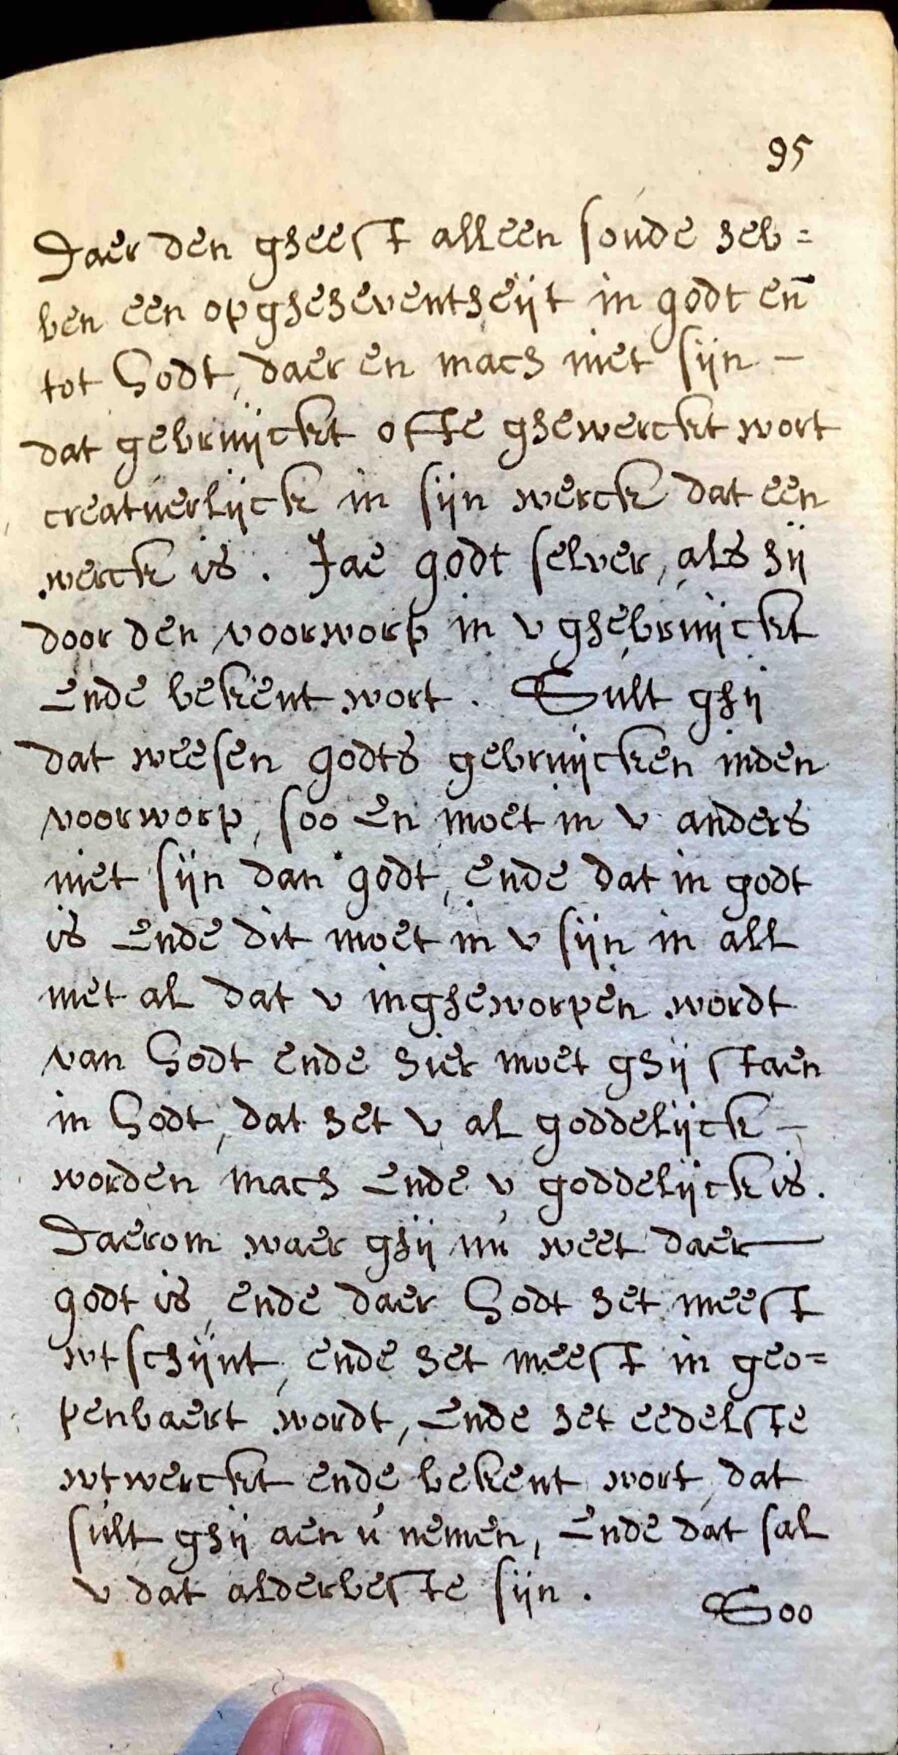 95
Daer den gheest alleen soude heb=
ben een opgheheventheijt in godt en̄
tot Godt, daer en mach niet sijn –
dat gebruijckt ofte ghewerckt wort
creatuerlijck in sijn werck dat een
werck is. Jae godt selver, als hij
door den voorworp in v ghebruijckt
Ende bekent wort. Sult ghij
dat weesen godts gebruijcken inden
voorworp, soo En moet in v anders
niet sijn dan godt, Ende dat in godt
is Ende dit moet in v sijn in all
met al dat v ingheworpen wordt
van Godt Ende hier moet ghij staen
in Godt, dat het v al goddelijck –
worden mach Ende v goddelijck is.
Daerom waer ghij nu weet daer
godt is, Ende daer Godt het meest
wtschijnt, Ende het meest in geo=
penbaert wordt, Ende het eedelste
wtwerckt Ende bekent wort, dat
sult ghij aen u nemen, Ende dat sal
v dat alderbeste sijn.
Soo